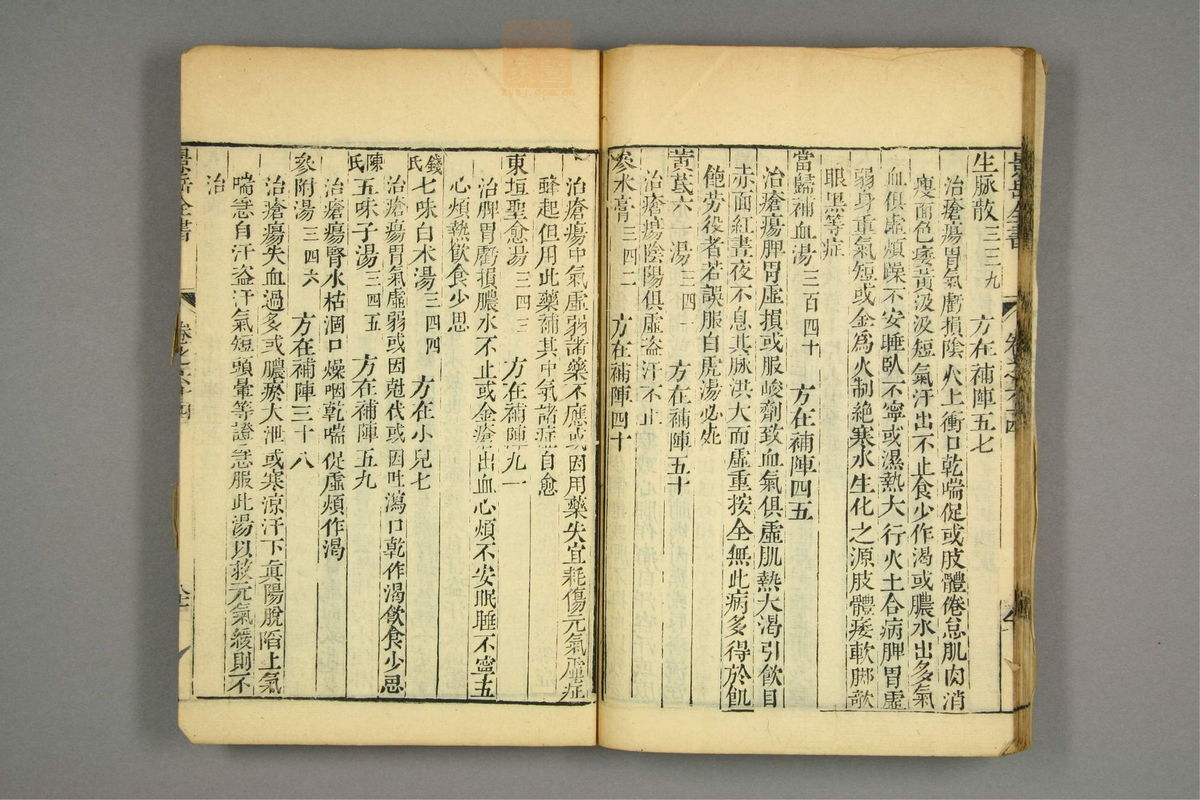 景岳全書
卷之六十四
生脉散三三九 方在補陣五七
治瘡瘍胃氣虧損陰火上衝口乾喘促或肢體倦怠肌肉消
瘦面色痿黃汲汲短氣汗出不止食少作渴或膿水出多氣
血俱虛煩躁不安睡臥不寧或濕熱大行火土合病脾胃虛
弱身重氣短或金爲火制絶寒水生化之源肢體痿軟脚欹
眼黑等症
當歸補血湯三百四十 方在補陣四五
治瘡瘍脾胃虛損或服峻劑致血氣俱虛肌熱大渴引飲目
赤面紅晝夜不息其脉洪大而虛重按全無此病多得於飢
飽勞役者若誤服白虎湯必死
黃芪六一湯三四一 方在補陣五十
治瘡瘍陰陽俱虛盜汗不止
參术膏三四二 方在補陣四十
治瘡瘍中氣虛弱諸藥不應或因用藥失宜耗傷元氣虛症
蜂起但用此藥補其中氣諸症自愈
東垣聖愈湯三四三 方在補陣九一
治脾胃虧損膿水不止或金瘡出血心煩不安眠睡不寧五
心煩熱飲食少思
錢氏七味白术湯三四四 方在小兒七
治瘡瘍胃氣虛弱或因尅伐或因吐瀉口乾作渴飲食少思
陳氏五味子湯三四五 方在補陣五九
治瘡瘍腎水枯涸口燥咽乾喘促虛煩作渴
參附湯三四六 方在補陣三十八
治瘡瘍失血過多或膿瘀大泄或寒涼汗下眞陽脫陷上氣
喘急自汗盜汗氣短頭暈等證急服此湯以救元氣緩則不
治
景岳全書
卷之六十四